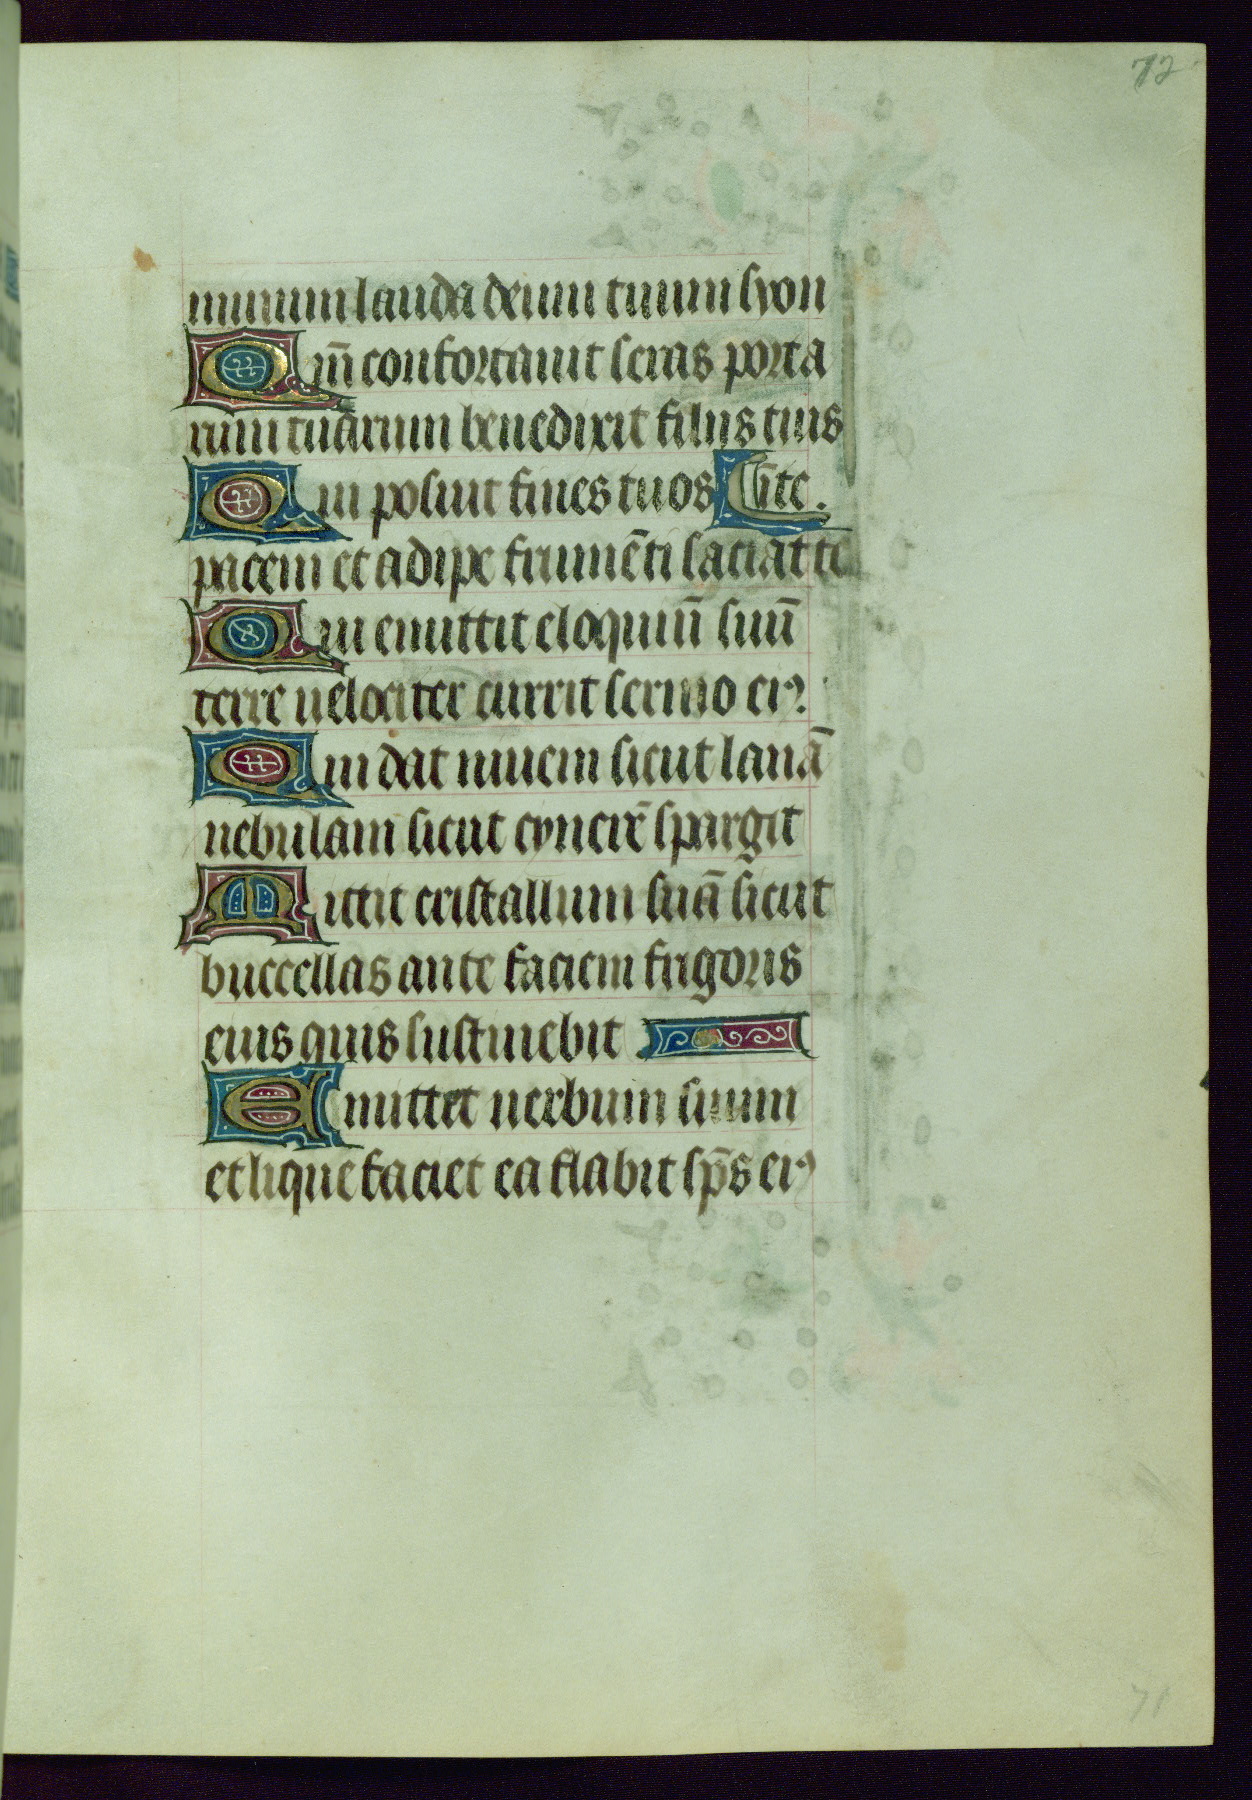 72
minum lauda deum tuum syon
Qm̄ confortauit seras porta
rum tuarum benedixit filiis tuis
Qui posuit fines tuos
pacem et adipe frumēti saciat te
Qui emittit eloquiū suū
terre uelociter currit sermo eiꝰ
Qui dat niuem sicut lanā
nebulam sicut cynerē spargit
Mittit cristallum suā sicut
buccellas ante faciem frigoris
eius quis sustinebit
Emittet uerbum suum
et liquefaciet ea flabit sp̄s eiꝰ
71